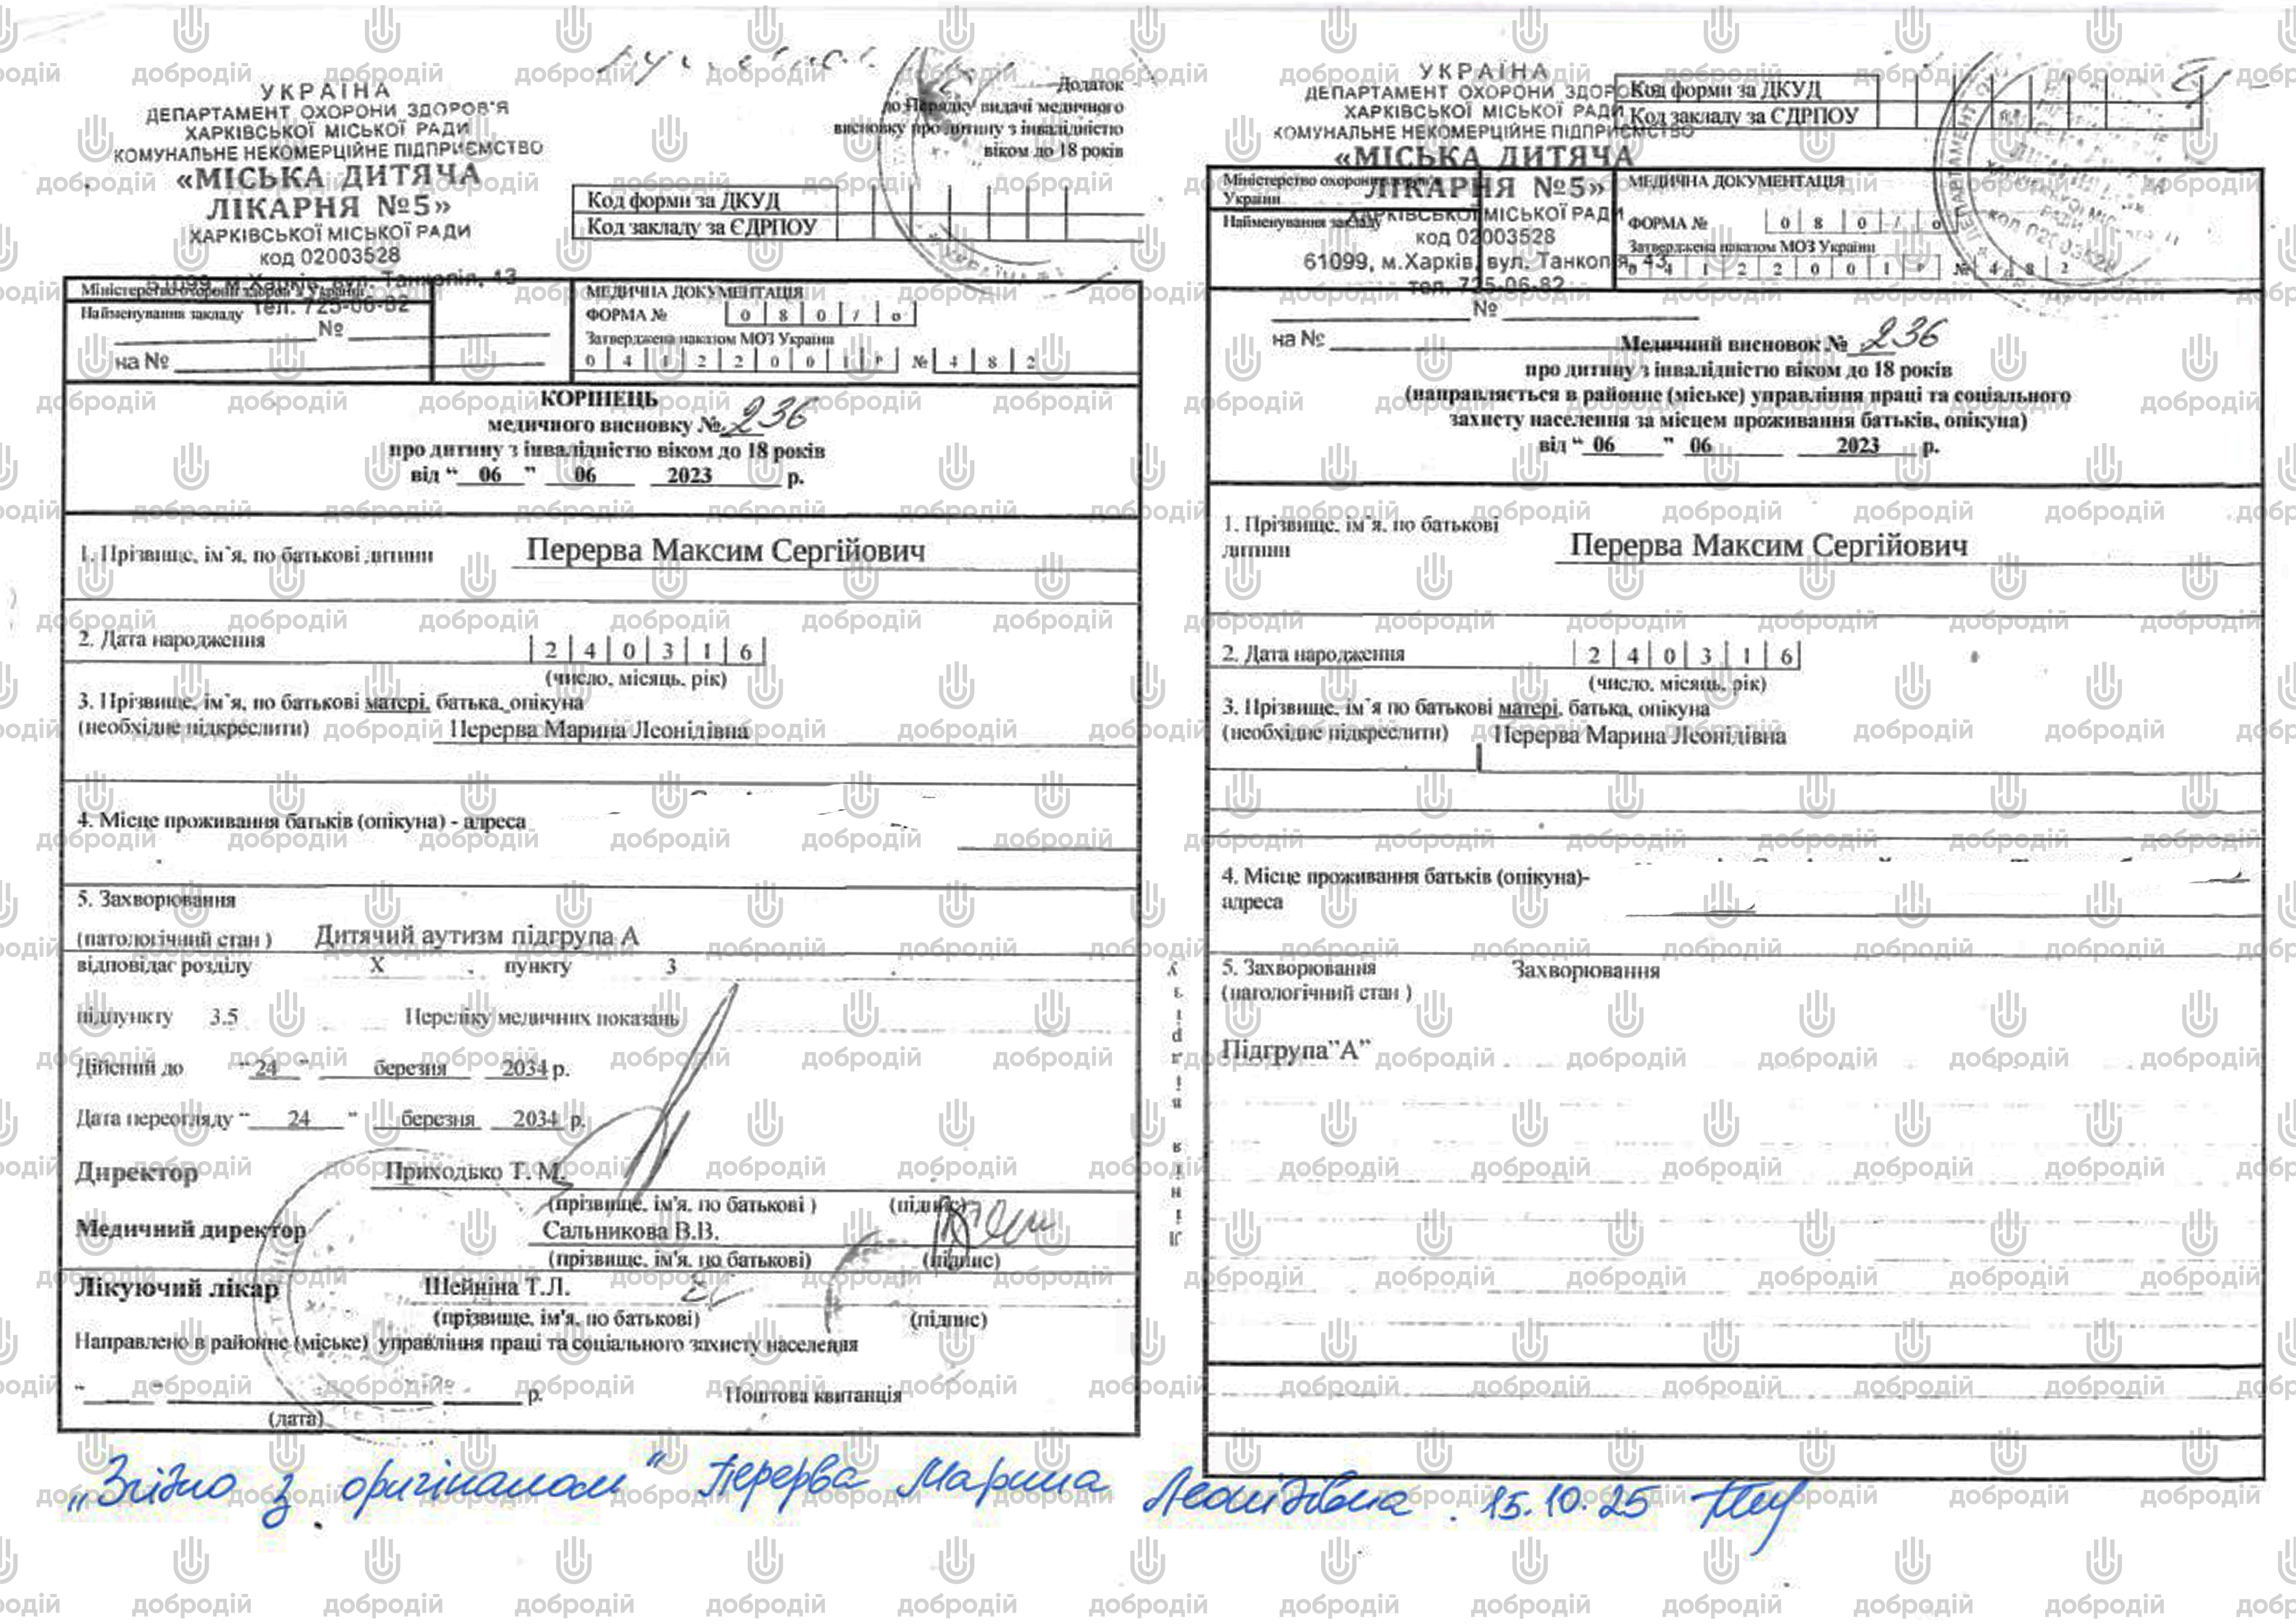 УКРАЇНА
ДЕПАРТАМЕНТ ОХОРОНИ ЗДОРОВ'Я
ХАРКІВСЬКОЇ МІСЬКОЇ РАДИ
КОМУНАЛЬНЕ НЕКОМЕРЦІЙНЕ ПІДПРИЄМСТВО
«МІСЬКА ДИТЯЧА
ЛІКАРНЯ №5»
ХАРКІВСЬКОЇ МІСЬКОЇ РАДИ
код 02003528
61099, м.Харків, вул. Танкопія, 43
тел. 725-06-82
№
на №
Додаток
до Порядку видачі медичного
висновку про дитину з інвалідністю
віком до 18 років
Код форми за ДКУД
Код закладу за ЄДРПОУ
Міністерство охорони здоров'я України
Найменування закладу
МЕДИЧНА ДОКУМЕНТАЦІЯ
ФОРМА № 0 8 0 / о
Затверджена наказом МОЗ України
0 4 1 2 2 0 0 1 р № 4 8 2
КОРІНЕЦЬ
медичного висновку № 236
про дитину з інвалідністю віком до 18 років
від “ 06 ” 06 2023 р.
1. Прізвище, ім`я, по батькові дитини Перерва Максим Сергійович
2. Дата народження 2 4 0 3 1 6
(число, місяць, рік)
3. Прізвище, ім`я, по батькові матері, батька, опікуна
(необхідне підкреслити) Перерва Марина Леонідівна
4. Місце проживання батьків (опікуна) - адреса
5. Захворювання
(патологічний стан ) Дитячий аутизм підгрупа А
відповідає розділу X , пункту 3
підпункту 3.5 Переліку медичних показань
Дійсний до “ 24 ” березня 2034 р.
Дата переогляду “ 24 ” березня 2034 р.
Директор Приходько Т. М.
(прізвище, ім'я, по батькові ) (підпис)
Медичний директор Сальникова В.В.
(прізвище, ім'я, по батькові) (підпис)
Лікуючий лікар Шейніна Т.Л.
(прізвище, ім'я, по батькові) (підпис)
Направлено в районне (міське) управління праці та соціального захисту населення
“ ” р. Поштова квитанція
(дата)
Лінія відрізу
УКРАЇНА
ДЕПАРТАМЕНТ ОХОРОНИ ЗДОРОВ'Я
ХАРКІВСЬКОЇ МІСЬКОЇ РАДИ
КОМУНАЛЬНЕ НЕКОМЕРЦІЙНЕ ПІДПРИЄМСТВО
«МІСЬКА ДИТЯЧА
ЛІКАРНЯ №5»
ХАРКІВСЬКОЇ МІСЬКОЇ РАДИ
код 02003528
61099, м.Харків, вул. Танкопія, 43
тел. 725-06-82
№
на №
Код форми за ДКУД
Код закладу за ЄДРПОУ
Міністерство охорони здоров'я
України
Найменування закладу
МЕДИЧНА ДОКУМЕНТАЦІЯ
ФОРМА № 0 8 0 / о
Затверджена наказом МОЗ України
0 4 1 2 2 0 0 1 р № 4 8 2
Медичний висновок № 236
про дитину з інвалідністю віком до 18 років
(направляється в районне (міське) управління праці та соціального
захисту населення за місцем проживання батьків, опікуна)
від “ 06 ” 06 2023 р.
1. Прізвище, ім`я, по батькові
дитини Перерва Максим Сергійович
2. Дата народження 2 4 0 3 1 6
(число, місяць, рік)
3. Прізвище, ім`я по батькові матері, батька, опікуна
(необхідне підкреслити) Перерва Марина Леонідівна
4. Місце проживання батьків (опікуна)-
адреса
5. Захворювання Захворювання
(патологічний стан )
Підгрупа”А”
„Згідно з оригіналом“ Перерва Марина Леонідівна. 15.10.25
добродій